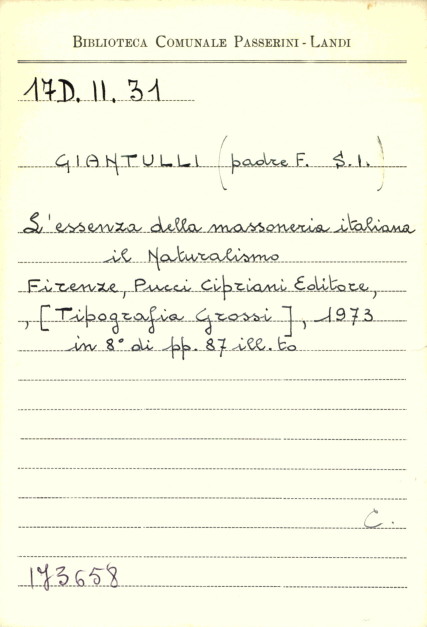 BIBLIOTECA COMUNALE PASSERINI - LANDI
17D. II. 31
GIANTULLI (padre F. S.I.)
L'essenza della massoneria italiana
il Naturalismo
Firenze, Pucci Cipriani Editore,
, [Tipografia Grossi], 1973
in 8° di pp. 87 ill.to
C.
173658